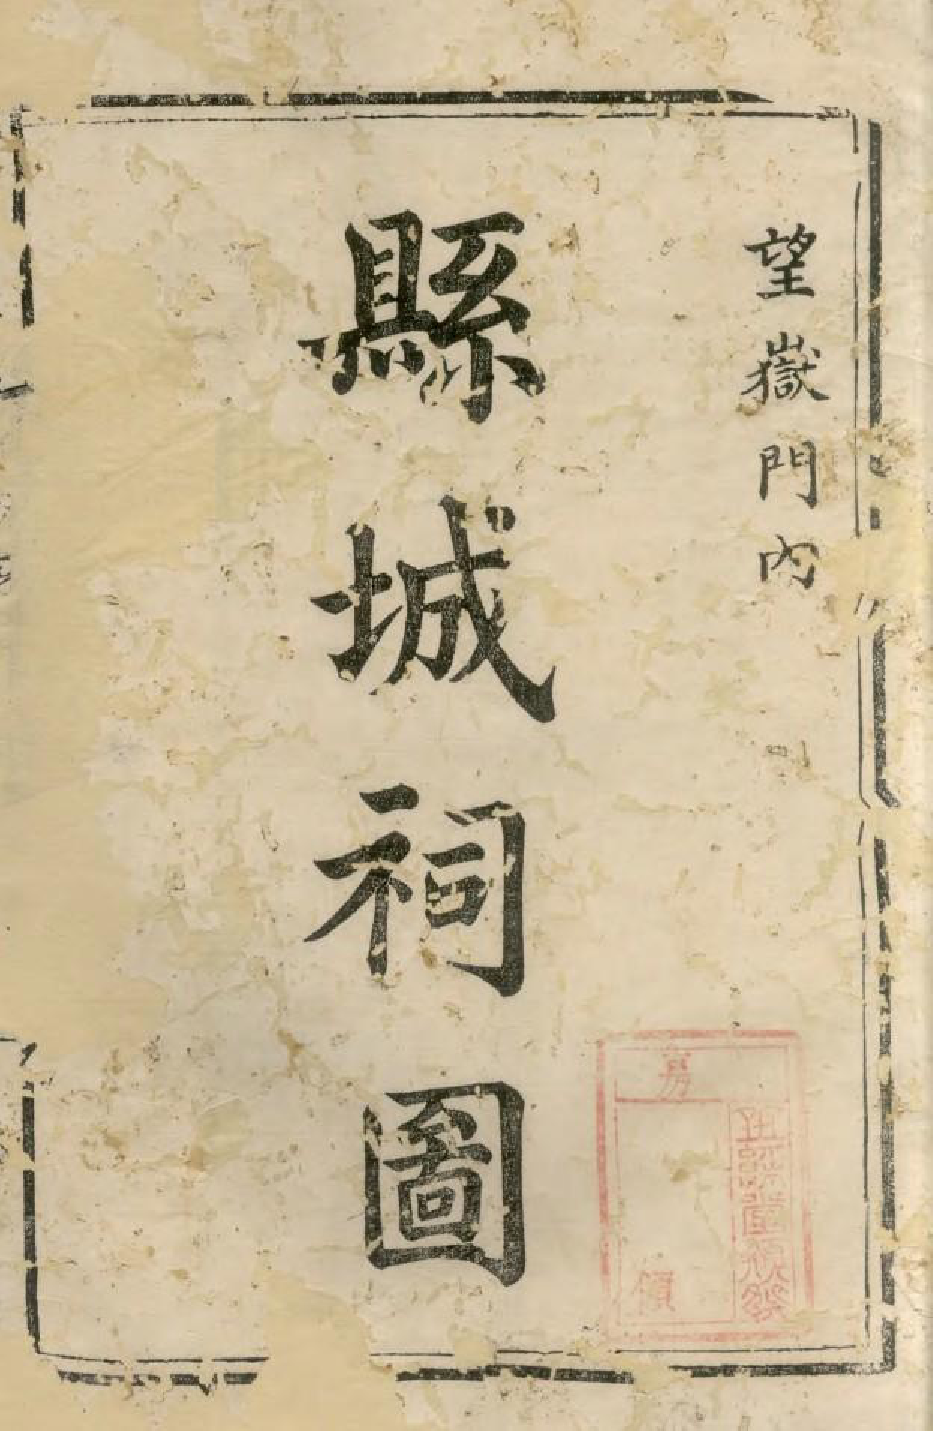 望嶽門內
縣城祠圖
房
領